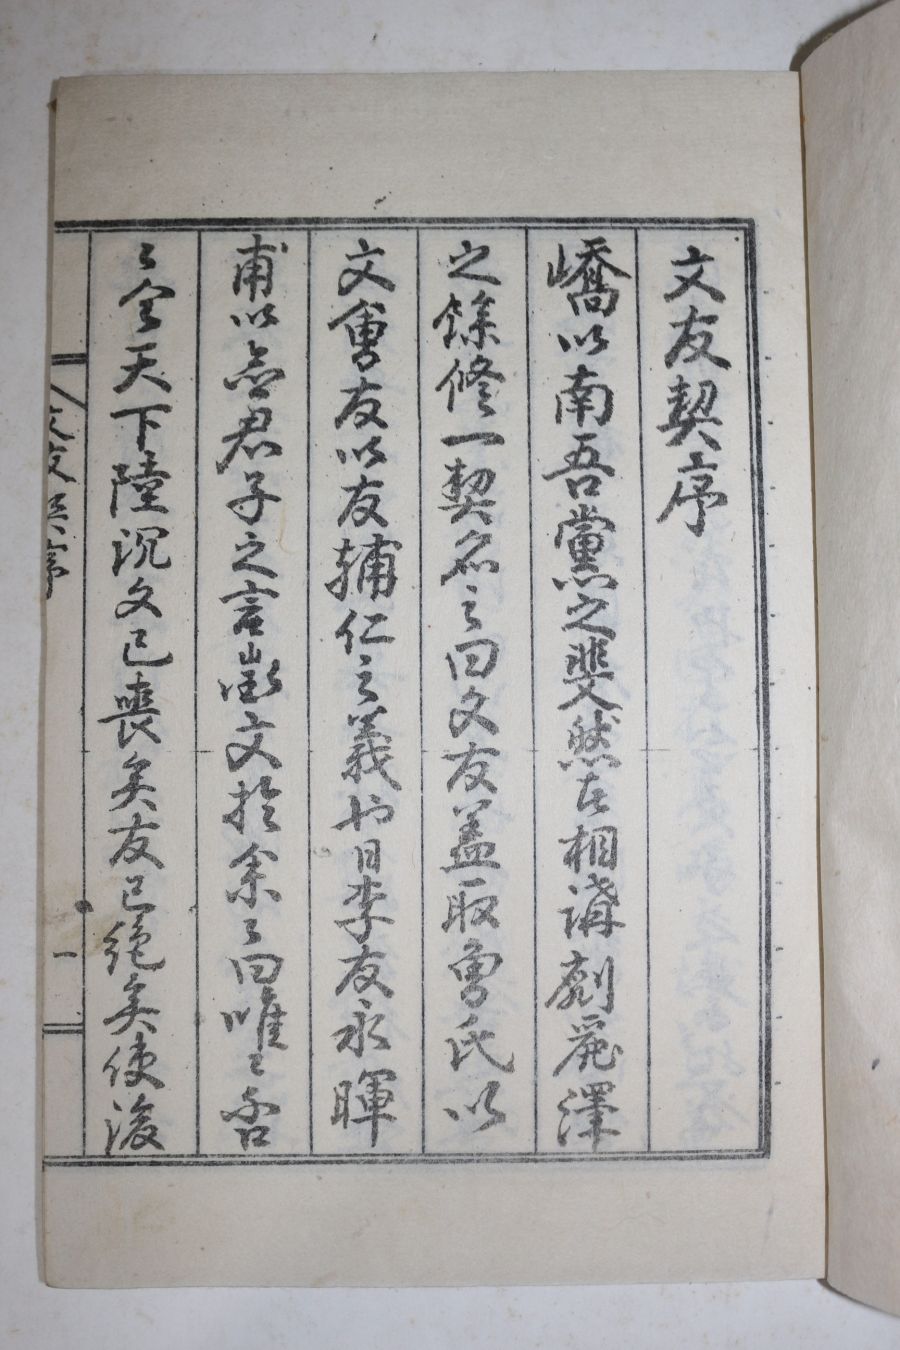 文友契序
嶠以南吾黨之斐然者相講劘麗澤
之餘修一契名之曰文友盖取曾氏以
文會友以友輔仁之義也日李友永暉
甫以僉君子之言徵文於余〻曰唯〻否
〻今天下陸沉文已喪矣友已絶矣使後
文友契序
一